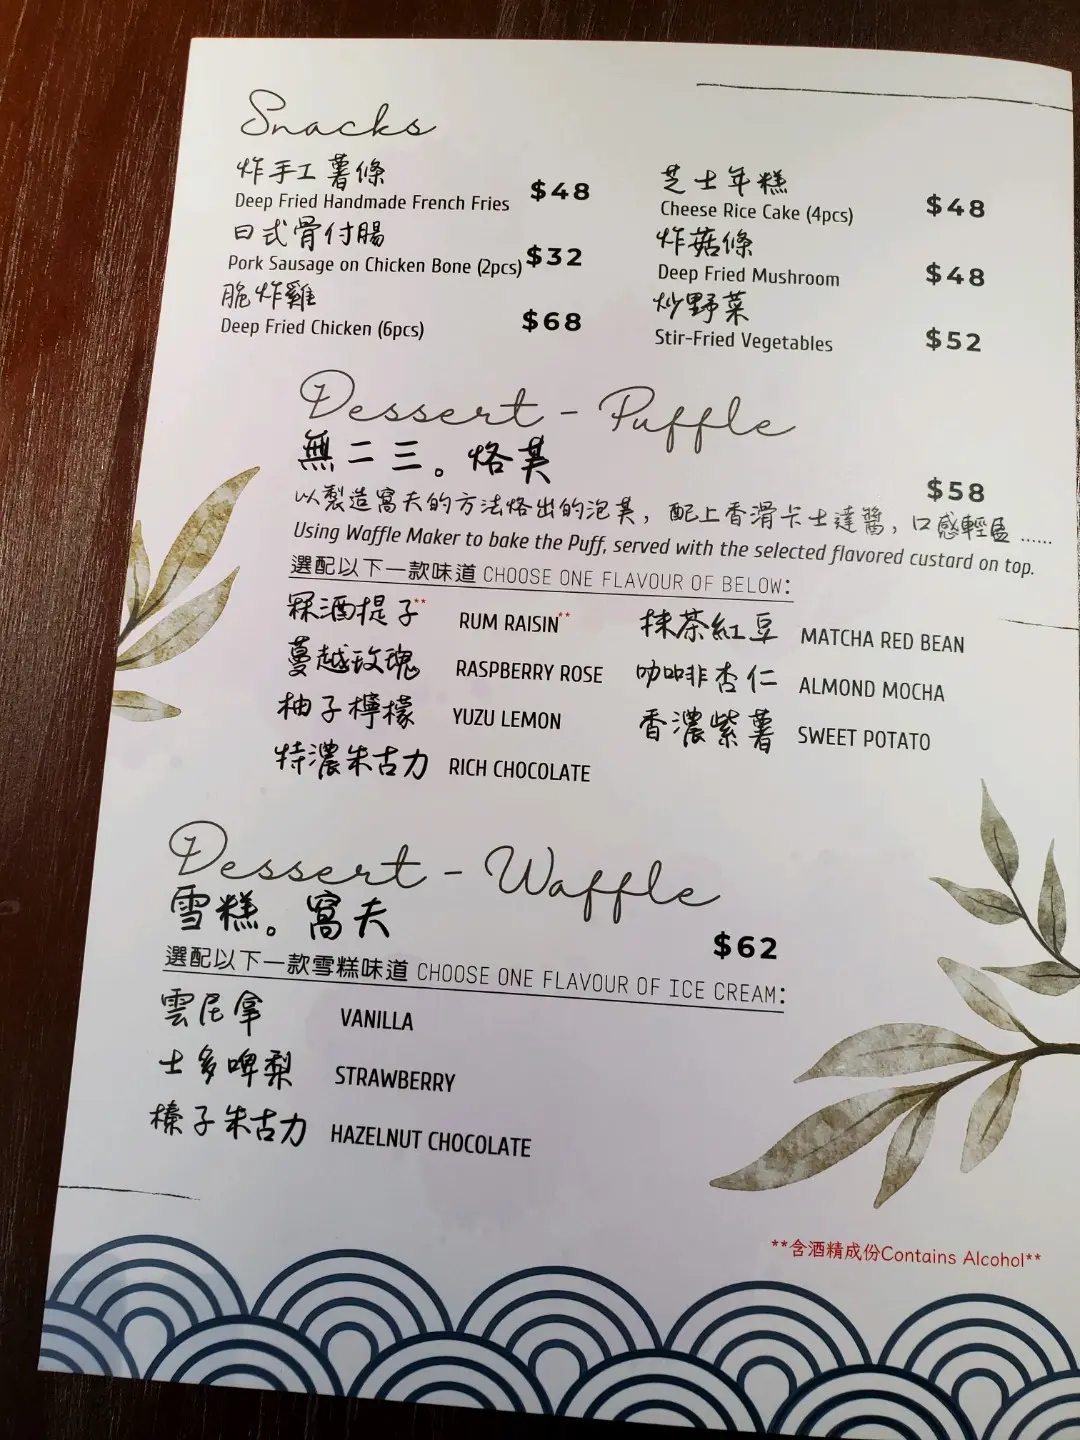 Snacks
炸手工薯條
Deep Fried Handmade French Fries $48
日式骨付腸
Pork Sausage on Chicken Bone (2pcs) $32
脆炸雞
Deep Fried Chicken (6pcs) $68
芝士年糕
Cheese Rice Cake (4pcs) $48
炸菇條
Deep Fried Mushroom $48
炒野菜
Stir-Fried Vegetables $52
Dessert - Puffle
無二三。烙芙 $58
以製造窩夫的方法烙出的泡芙，配上香滑卡士達醬，口感輕盈......
Using Waffle Maker to bake the Puff, served with the selected flavored custard on top.
選配以下一款味道 CHOOSE ONE FLAVOUR OF BELOW:
冧酒提子** RUM RAISIN**
蔓越玫瑰 RASPBERRY ROSE
柚子檸檬 YUZU LEMON
特濃朱古力 RICH CHOCOLATE
抹茶紅豆 MATCHA RED BEAN
咖啡杏仁 ALMOND MOCHA
香濃紫薯 SWEET POTATO
Dessert - Waffle
雪糕。窩夫 $62
選配以下一款雪糕味道 CHOOSE ONE FLAVOUR OF ICE CREAM:
雲尼拿 VANILLA
士多啤梨 STRAWBERRY
榛子朱古力 HAZELNUT CHOCOLATE
**含酒精成份Contains Alcohol**